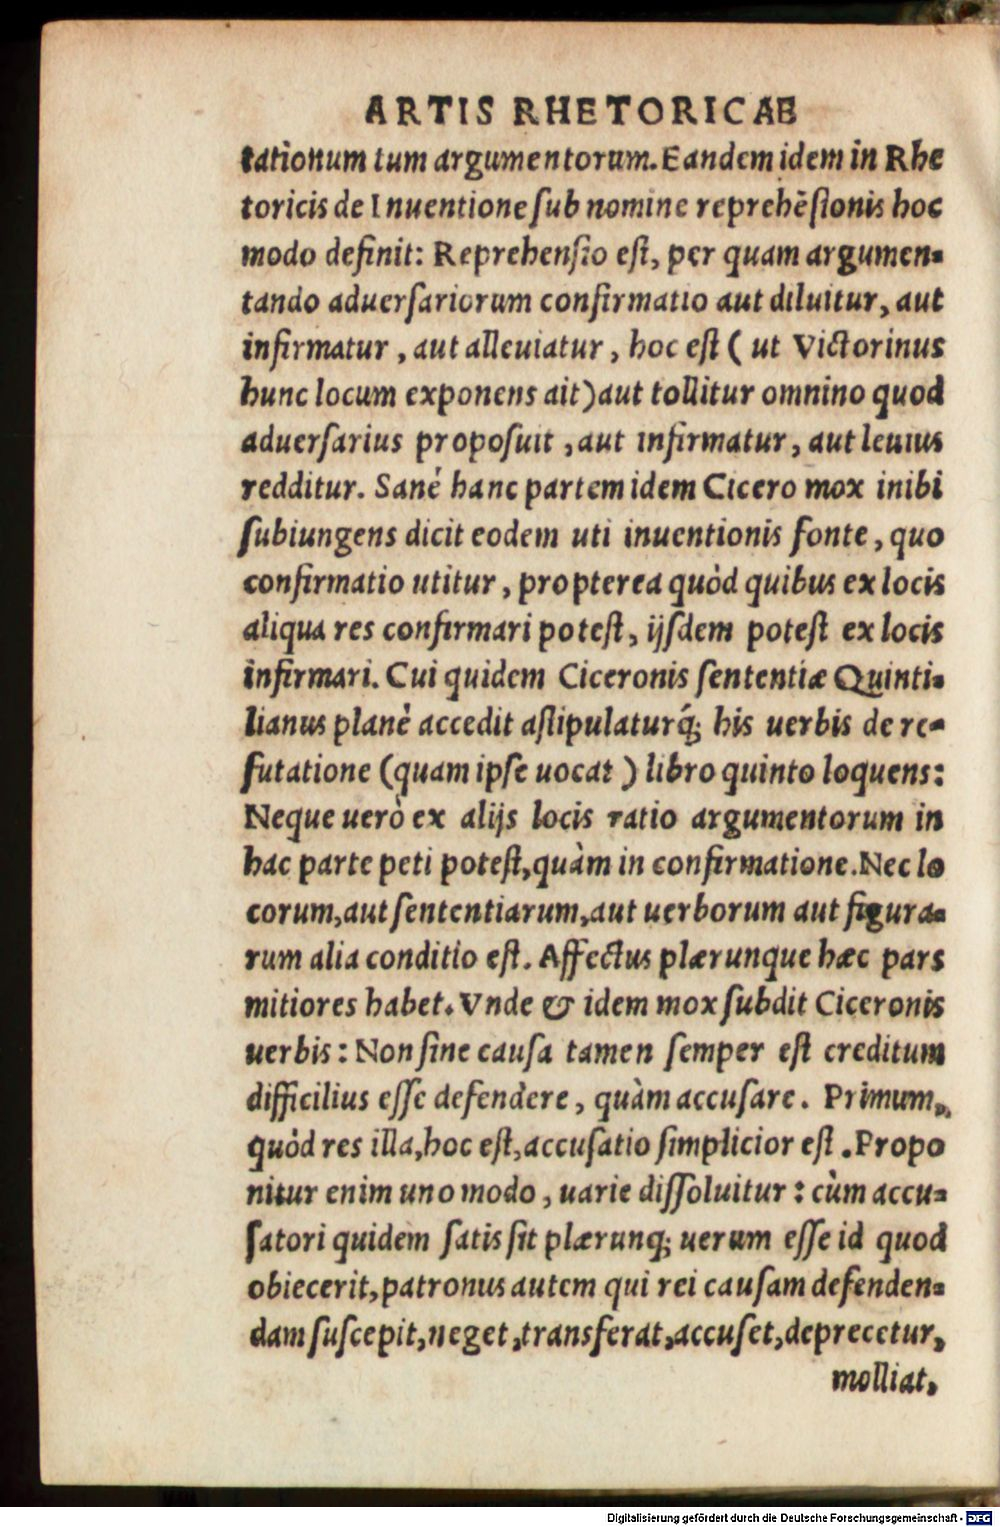 ARTIS RHETORICAE
tationum tum argumentorum. Eandem idem in Rhe
toricis de Inuentione ſub nomine reprehẽſionis hoc
modo definit: Reprehenſio eſt, per quam argumen-
tando aduerſariorum confirmatio aut diluitur, aut
infirmatur, aut alleuiatur, hoc eſt (ut Victorinus
hunc locum exponens ait) aut tollitur omnino quod
aduerſarius propoſuit, aut infirmatur, aut leuius
redditur. Sanè hanc partem idem Cicero mox inibi
ſubiungens dicit eodem uti inuentionis fonte, quo
confirmatio utitur, propterea quòd quibus ex locis
aliqua res confirmari poteſt, ijſdem poteſt ex locis
infirmari. Cui quidem Ciceronis ſententiæ Quinti-
lianus planè accedit aſtipulaturq́; his uerbis de re-
futatione (quam ipſe uocat) libro quinto loquens:
Neque uerò ex alijs locis ratio argumentorum in
hac parte peti poteſt, quàm in confirmatione. Nec lo
corum, aut ſententiarum, aut uerborum aut figura-
rum alia conditio eſt. Affectus plærunque hæc pars
mitiores habet. Vnde & idem mox ſubdit Ciceronis
uerbis: Non ſine cauſa tamen ſemper eſt creditum
difficilius eſſe defendere, quàm accuſare. Primum,
quòd res illa, hoc eſt, accuſatio ſimplicior eſt. Propo
nitur enim uno modo, uarie diſſoluitur: cùm accu-
ſatori quidem ſatis ſit plærunq; uerum eſſe id quod
obiecerit, patronus autem qui rei cauſam defenden-
dam ſuſcepit, neget, transferat, accuſet, deprecetur,
molliat,
Digitalisierung gefördert durch die Deutsche Forschungsgemeinschaft - DFG